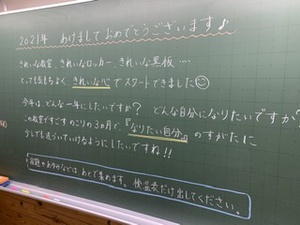 2021年 あけまして おめでとうございます♪
きれいな教室、きれいなロッカー、きれいな黒板…
とっても気持ちよく、きれいな心でスタートできました☺
今年は、どんな一年にしたいですか? どんな自分になりたいですか?
この教室ですごす のこりの3ヵ月で、『なりたい自分』のすがたに
少しでも近づいていけるようにしたいですね!!
宿題 あゆみなどは、あとで集めます。検温表だけ出してください。